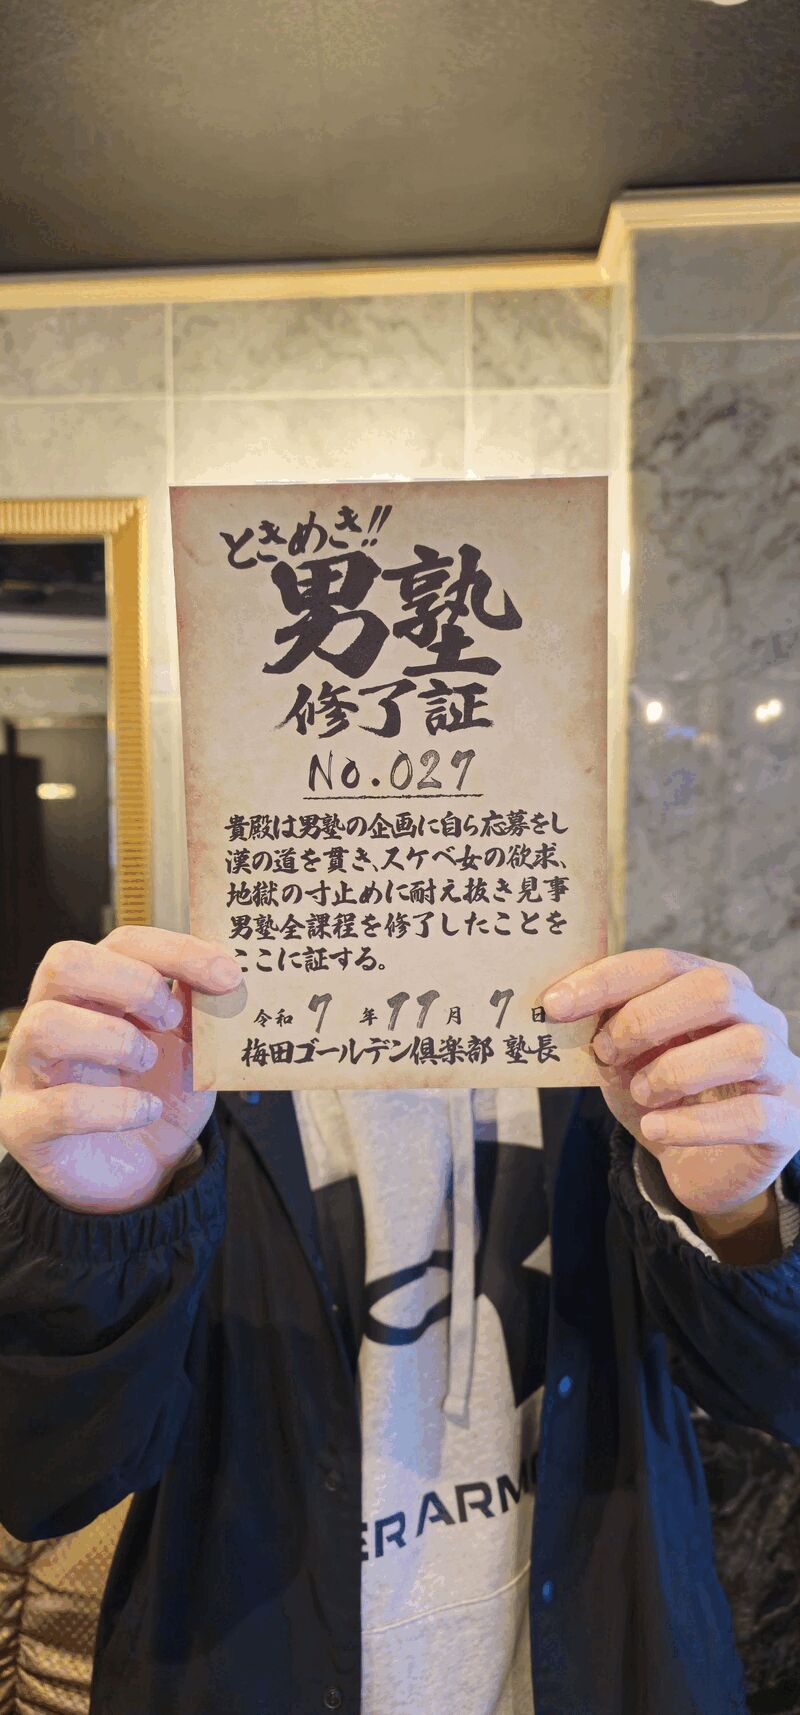 ときめき!!
男塾
修了証
No.027
貴殿は男塾の企画に自ら応募をし
漢の道を貫き、スケベ女の欲求、
地獄の寸止めに耐え抜き見事
男塾全課程を修了したことを
ここに証する。
令和 7 年 11 月 7 日
梅田ゴールデン倶楽部 塾長
ER ARM